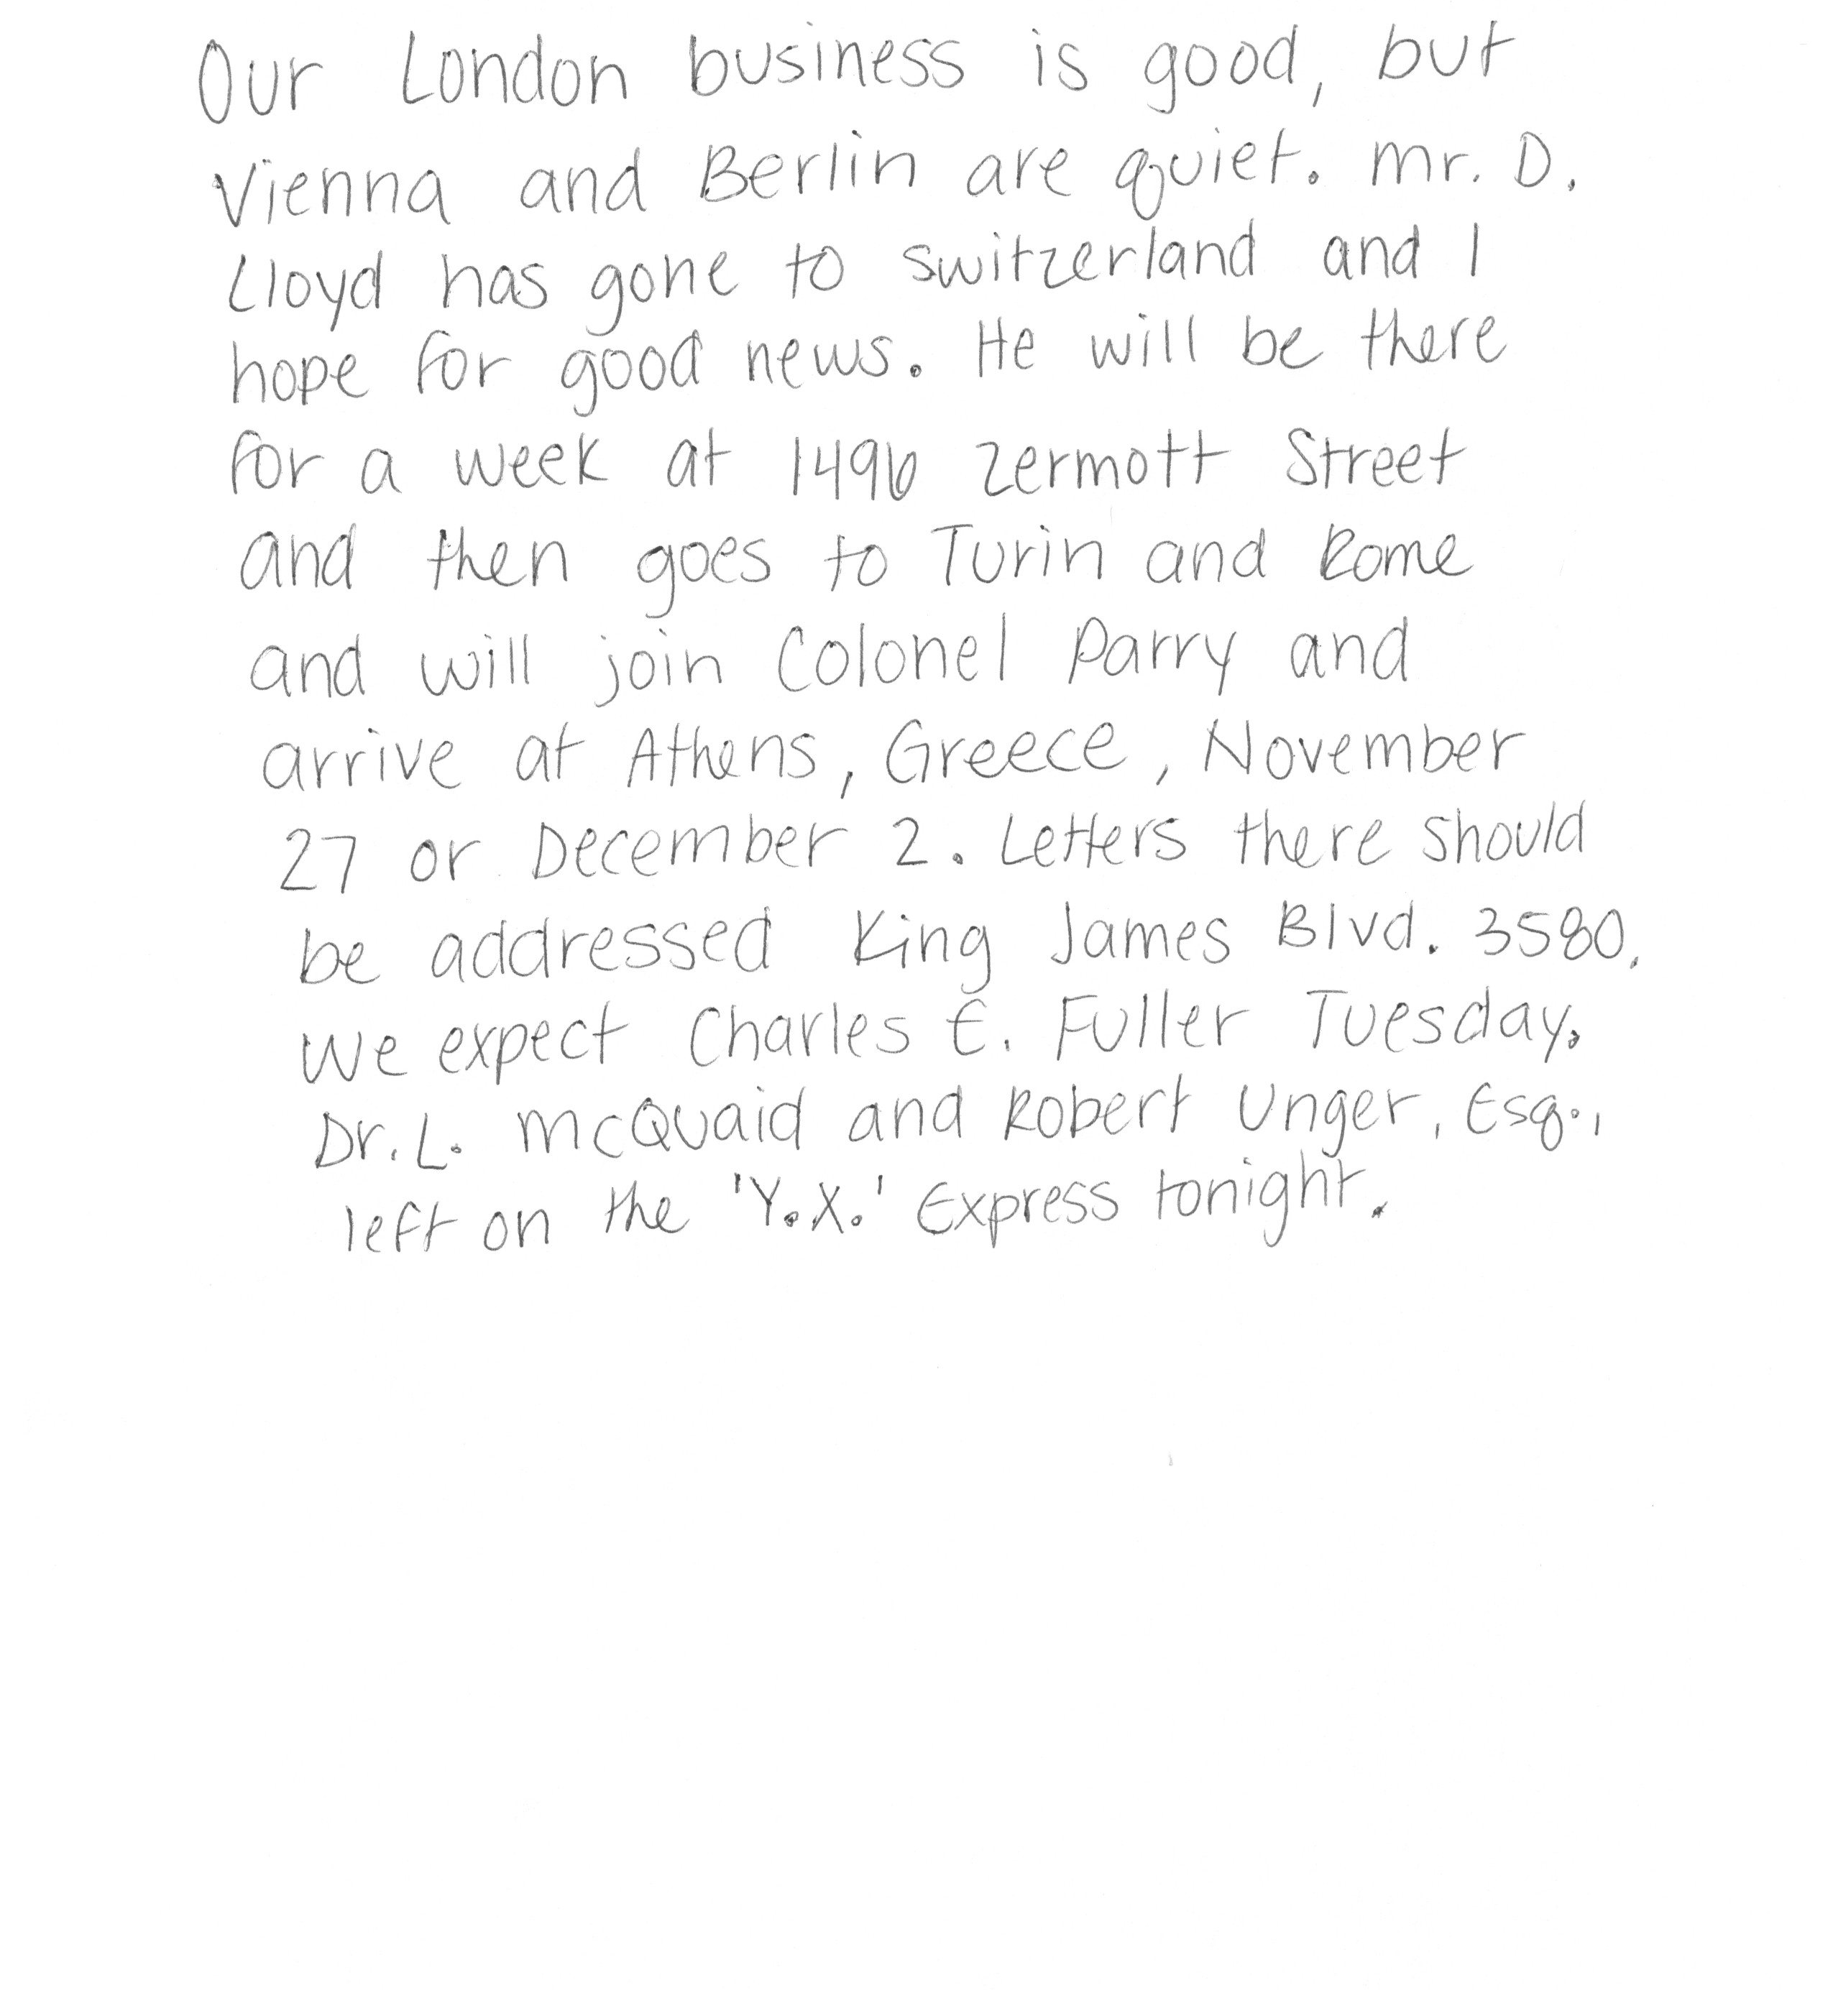 Our London business is good, but
Vienna and Berlin are quiet. Mr. D.
Lloyd has gone to Switzerland and I
hope for good news. He will be there
for a week at 1496 Zermott Street
and then goes to Turin and Rome
and will join Colonel Parry and
arrive at Athens, Greece, November
27 or December 2. Letters there should
be addressed King James Blvd. 3580.
We expect Charles E. Fuller Tuesday.
Dr. L. McQuaid and Robert Unger, Esq.,
left on the 'Y.X.' Express tonight.